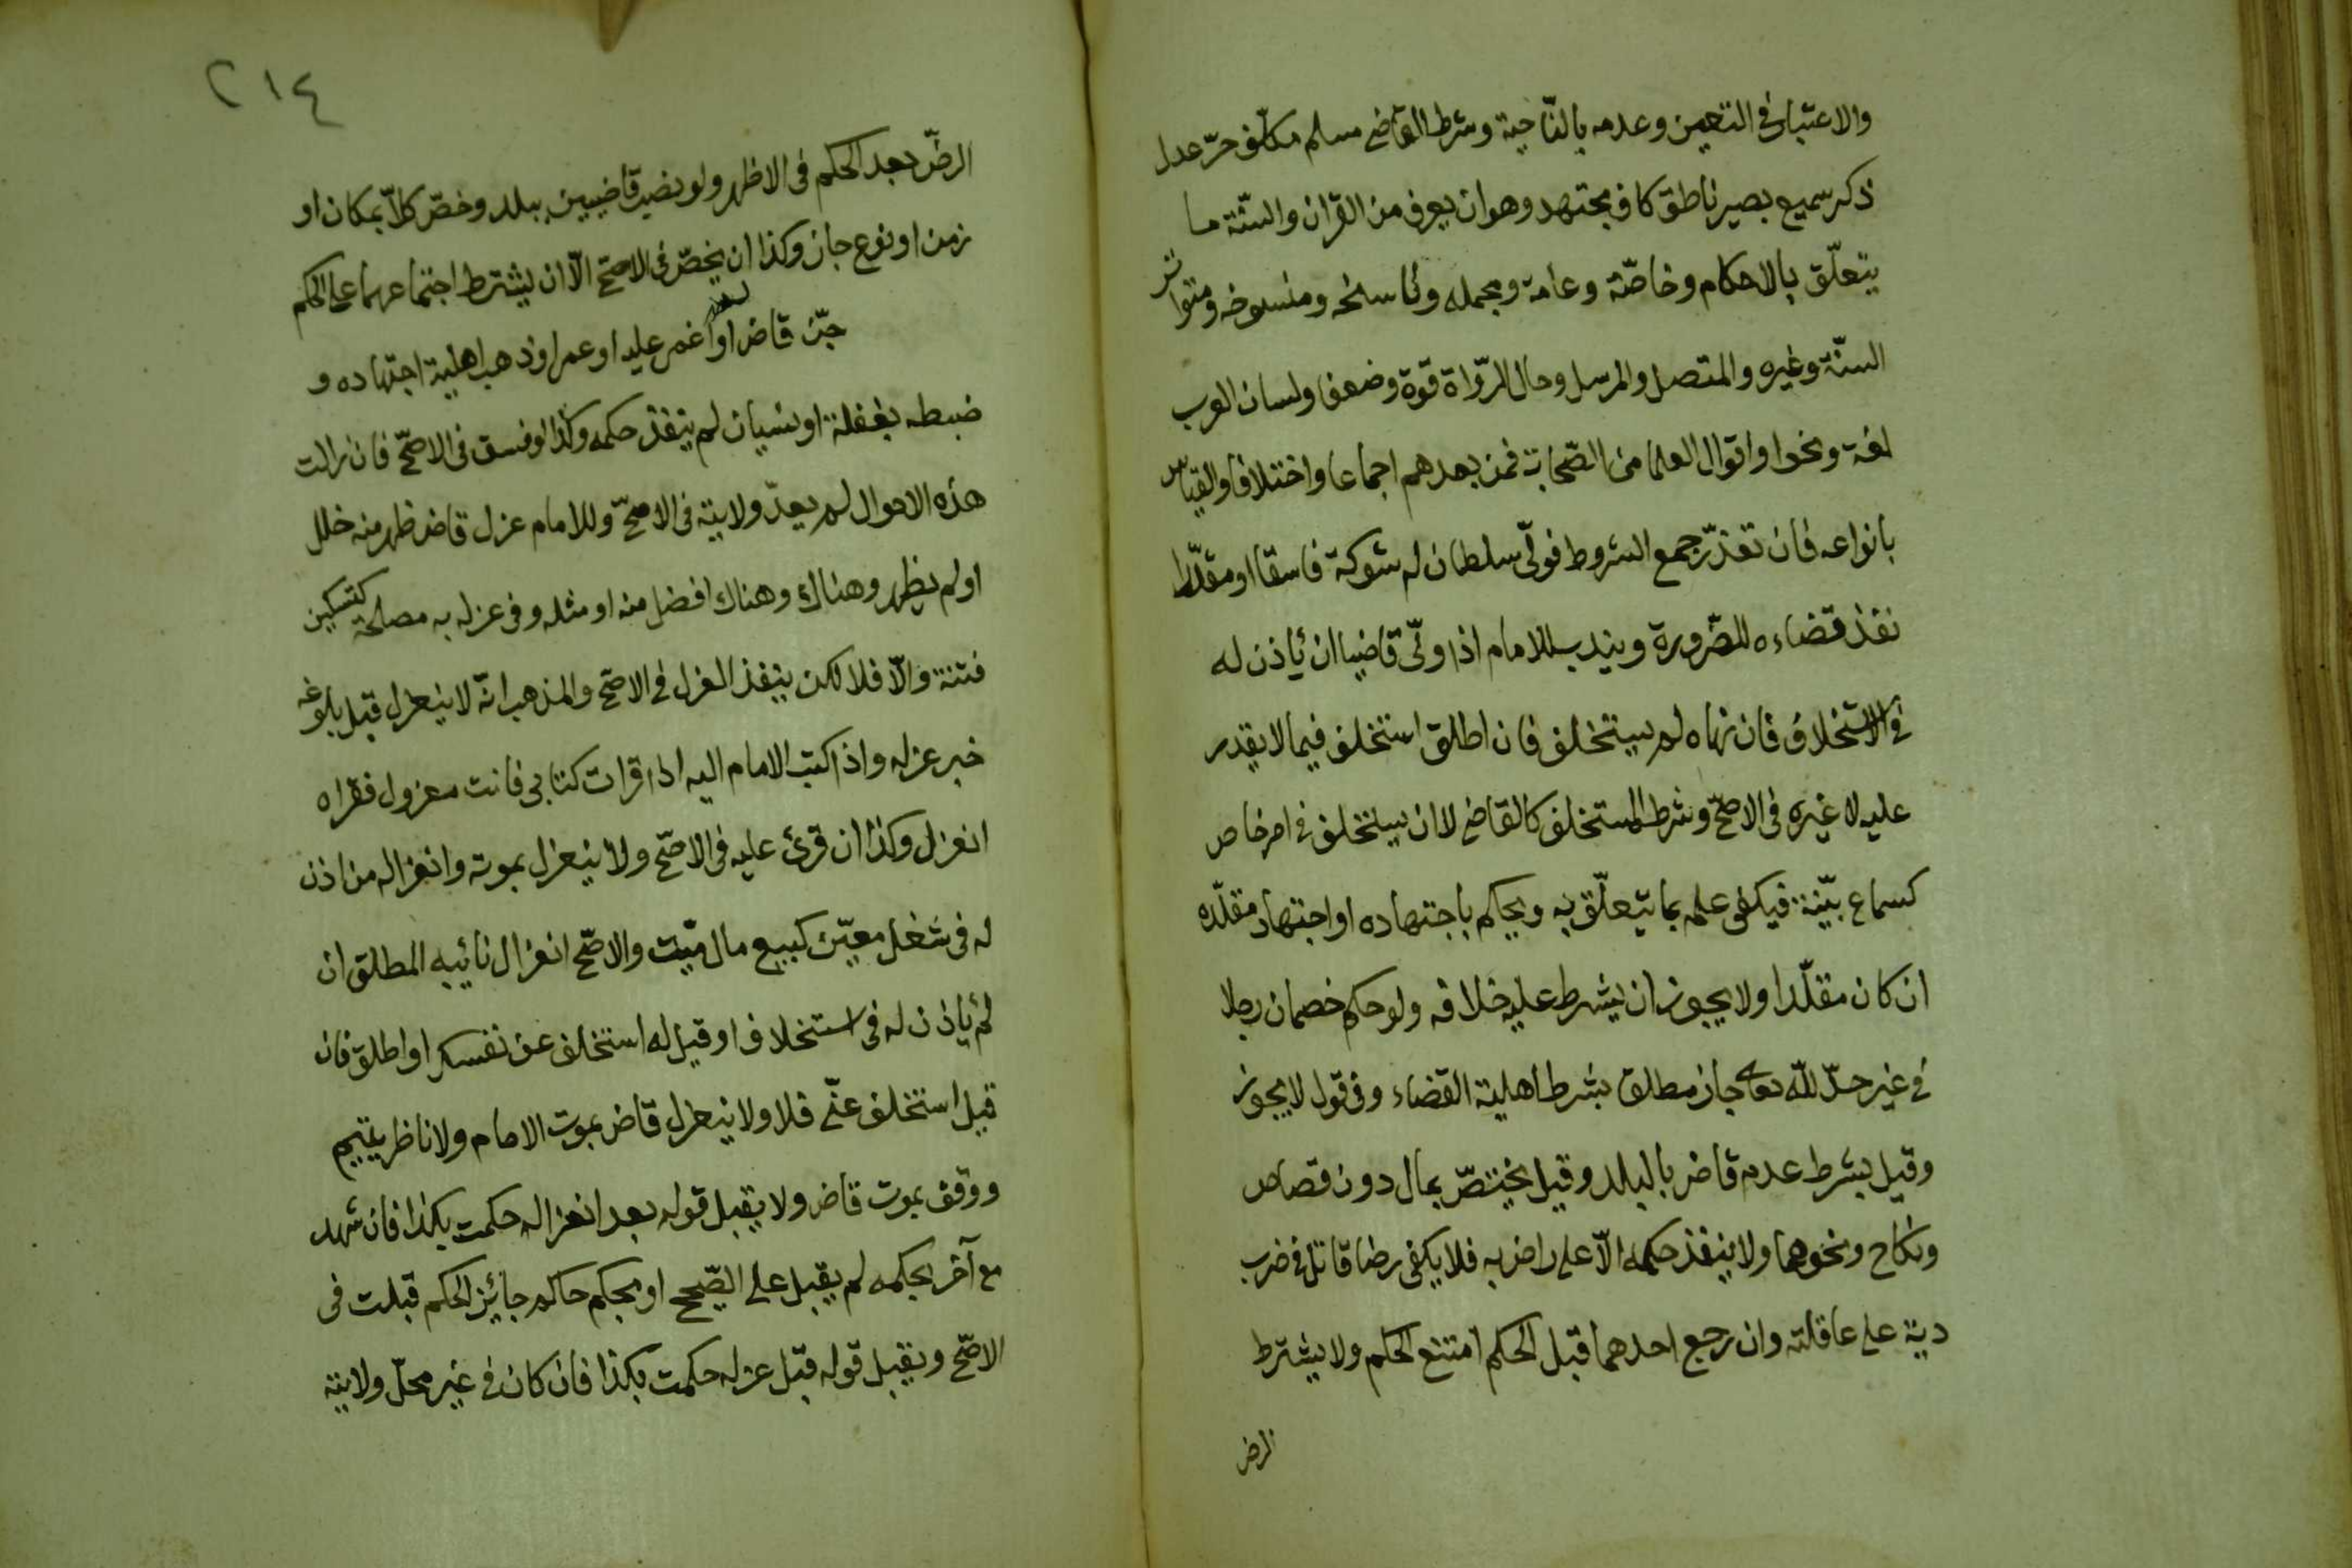 والاعتبار فى التعيين وعدمه بالنّاحية وشرط القاضى مسلم مكلّف حرّ عدل
ذكر سميع بصير ناطق كاف مجتهد وهو ان يعرف من القران والسّنّة ما
يتعلّق بالاحكام وخاصّه وعامه ومجمله وناسخه ومنسوخه ومتواتر
السنّة وغيره والمتصل والمرسل وحال الرّواة قوة وضعفا ولسان العرب
لغة ونحوا واقوال العلما من الصّحابة فمن بعدهم اجماعا واختلافا والقياس
بانواعه فان تعذّر جمع الشروط فولّى سلطان له شوكة فاسقا او مقلّدا
نفذ قضاءه للضّرورة ويندب للامام اذا ولّى قاضيا ان ياذن له
فى الاستخلاف فان نهاه لم يستخلف فان اطلق استخلف فيما لا يقدر
عليه لا غيره فى الاصحّ وشرط المستخلف كالقاضى لا ان يستخلف فى امر خاص
كسماع بيّنة فيكفى علمه بما يتعلّق به ويحكم باجتهاده او اجتهاد مقلّده
ان كان مقلّدا ولا يجوز ان يشرط عليه خلافه ولو حكم خصمان رجلا
فى غير حدّ للّه تعالى جاز مطلق بشرط اهلية القضاء وفى قول لا يجوز
وقيل بشرط عدم قاض بالبلد وقيل يختصّ بمال دون قصاص
ونكاح ونحوهما ولا ينفذ حكمه الّا على راض به فلا يكفى رضا قاتل فى ضرب
دية على عاقلته وان رجع احدهما قبل الحكم امتنع الحكم ولا يشترط
الرض
٢١٤
الرضّ بعد الحكم فى الاظهر ولو نصب قاضيين ببلد وخصّ كلّا بمكان او
زمن او نوع جاز وكذا ان يخصّ فى الاصحّ الّا ان يشترط اجتماعهما على الحكم
جنّ قاض او اغمى عليه او عمى او ذهب اهلية اجتهاده و
ضبطه بغفلة او نسيان لم ينفذ حكمه وكذا لو فسق فى الاصحّ فان زالت
هذه الاحوال لم يعدّ ولايته فى الاصحّ وللامام عزل قاض ظهر منه خلل
او لم يظهر وهناك وهناك افضل منه او مثله وفى عزله به مصلحة كتسكين
فتنة والّا فلا لكن ينفذ العزل فى الاصحّ والمذهب انّه لا ينعزل قبل بلوغه
خبر عزله واذا كتب الامام اليه اذا قرات كتابى فانت معزول فقراه
انعزل وكذا ان قرئ عليه فى الاصحّ ولا ينعزل بموته وانعزاله من اذن
له فى شغل معيّن كبيع مال ميّت والاصحّ انعزال نائبه المطلق ان
لم ياذن له فى استخلاف او قيل له استخلف عن نفسك او اطلق فان
قيل استخلف عنّى فلا ولا ينعزل قاض بموت الامام ولا ناظر يتيم
ووقف بموت قاض ولا يقبل قوله بعد انعزاله حكمت بكذا فان شهد
مع آخر بحكمه لم يقبل على الصّحيح او بحكم حاكم جائز الحكم قبلت فى
الاصحّ ويقبل قوله قبل عزله حكمت بكذا فان كان فى غير محلّ ولايته